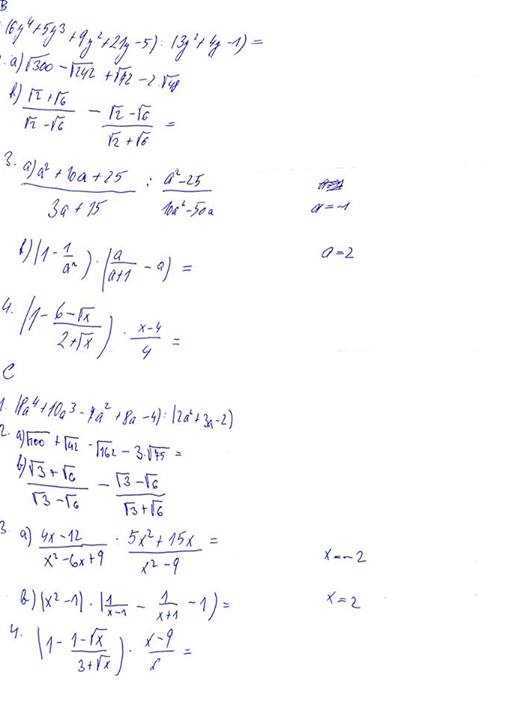 B
(6y⁴+5y³+9y²+21y-5):(3y²+4y-1)=
a) √300 - √242 + √192 - 2√48
b) (√2+√6)/(√2-√6) - (√2-√6)/(√2+√6) =
3. a) (a²+10a+25)/(3a+15) : (a²-25)/(10a²-50a) a=-1
b) (1-1/a²)·(a/(a+1) - a) = a=2
4. (1-(6-√x)/(2+√x))·(x-4)/4 =
C
1. (8a⁴+10a³-7a²+8a-4):(2a²+3a-2)
2. a) + - √162 - 3·√75 =
b) (√3+√6)/(√3-√6) - (√3-√6)/(√3+√6)
3 a) (4x-12)/(x²-6x+9) · (5x²+15x)/(x²-9) = x=-2
b) (x²-1)·(1/(x-1) - 1/(x+1) - 1)= x=2
4. (1-(1-√x)/(3+√x))·(x-9)/x =